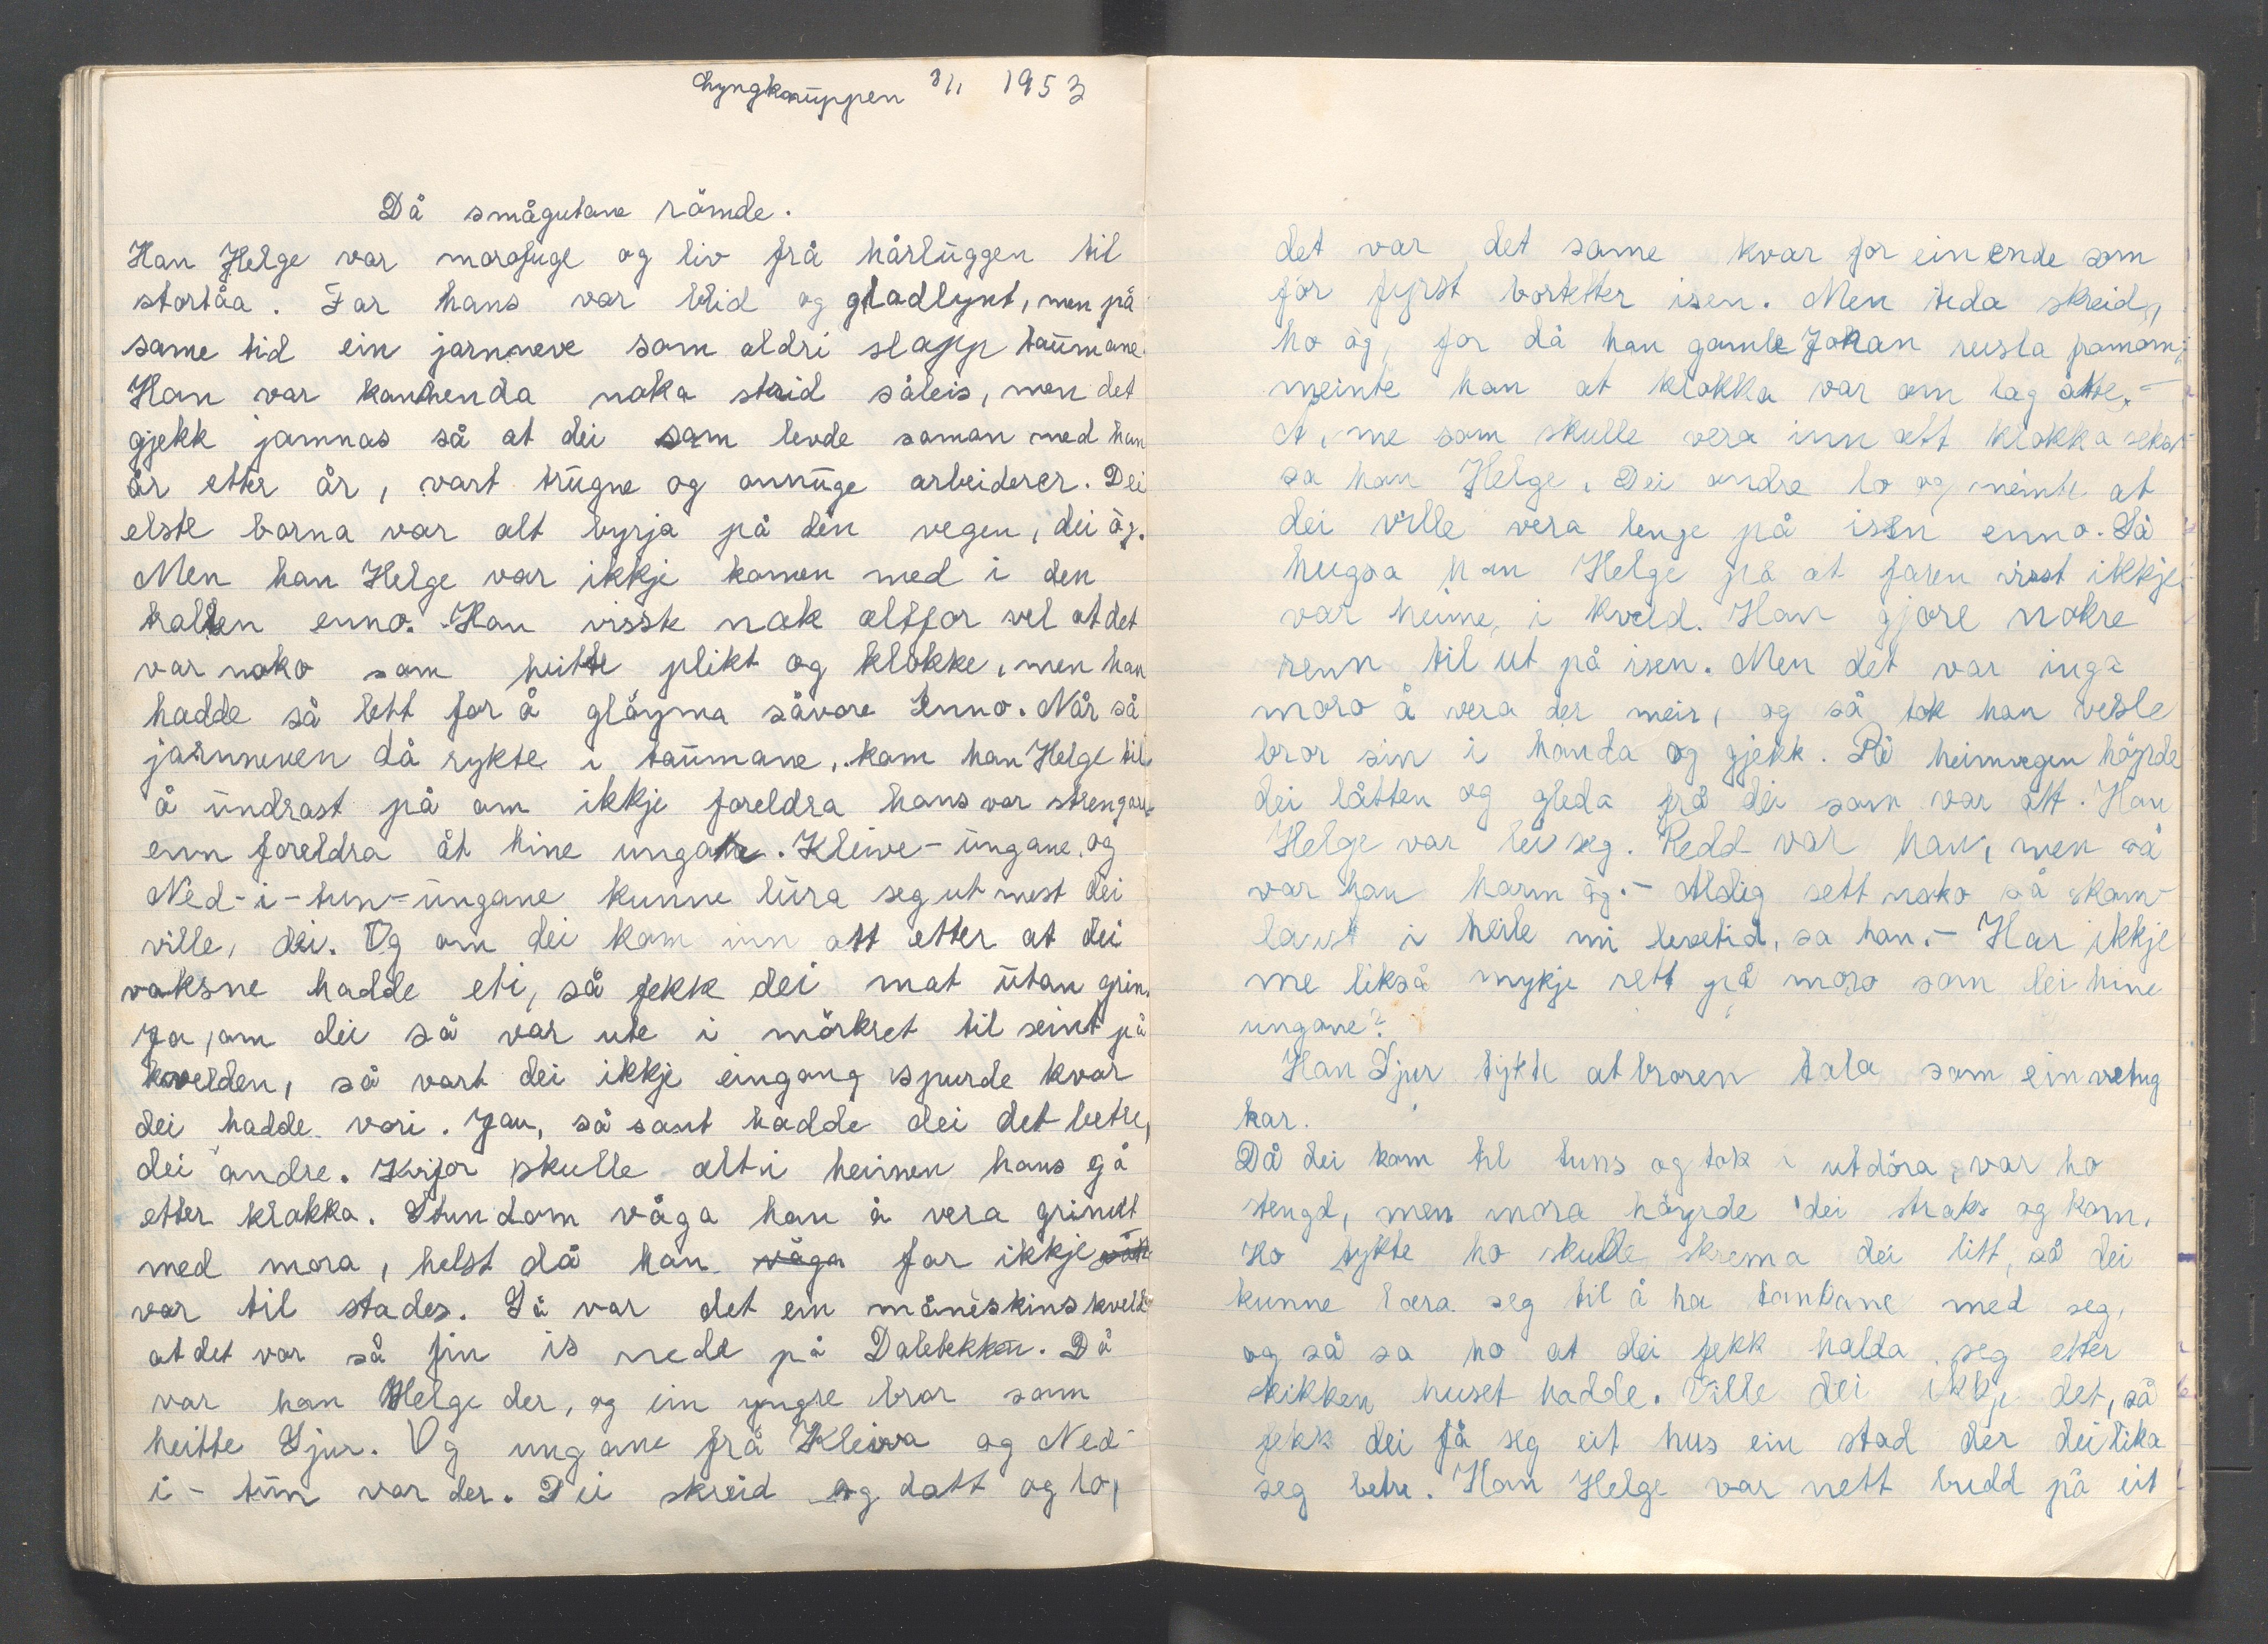 Lyngknuppen 3/1 1953
Då smågutane römde.
Han Helge var morofuge og liv frå hårluggen til
stortåa. Far hans var blid og gladlynt, men på
same tid ein jarnneve som aldri slapp taumane.
Han var kanhenda noka strid såleis, men det
gjekk jamnas så at dei som levde saman med han
år etter år, vart trugne og onnuge arbeiderer. Dei
elste borna var alt byrja på den vegen, dei òg.
Men han Helge var ikkje komen med i den
tralten enno. Han visste nok altfor vel at det
var noko som heitte plikt og klokke, men han
hadde så lett for å glöyma såvore enno. Når så
jarnneven då rykte i taumane, kom han Helge til
å undrast på om ikkje foreldra hans var strengare
enn foreldra åt hine ungane. Kleive-ungane og
Ned-i-tun-ungane kunne lura seg ut mest dei
ville, dei. Og om dei kom inn att etter at dei
vaksne hadde eti, så fekk dei mat utan grin.
Ja, om dei så var ute i mörkret til seint på
kvelden, så vart dei ikkje eingong spurde kvar
dei hadde vori. Jau, så sant hadde dei det betre,
dei andre. Kvifor skulle alt i heimen hans gå
etter klokka. Stundom våga han å vera grinut
med mora, helst då han våga far ikkje
var til stades. Så var det ein måneskinskveld
at det var så fin is nede på Dalebekken. Då
var han Helge der, og ein yngre bror som
heitte Sjur. Og ungane frå Kleiva og Ned-
i-tun var der. Dei skreid og datt og lo,
det var det same kvar for ein ende som
for fyrst bortetter isen. Men tida skreid,
ho òg, for då han gamle Johan rusla framom,
meinte han at klokka var om lag åtte. -
Å, me som skulle vera inn att klokka seks -
sa han Helge. Dei andre lo og meinte at
dei ville vera lenge på isen enno. Så
hugsa han Helge på at faren visst ikkje
var heime i kveld. Han gjore nokre
renn til ut på isen. Men det var inga
moro å vera der meir, og så tok han vesle
bror sin i handa og gjekk. På heimvegen höyrde
dei låtten og gleda frå dei som var att. Han
Helge var lei seg. Redd var han, men så
var han harm òg. - Aldig sett noko så skam-
laust i heile mi levetid, sa han. - Har ikkje
me likså mykje rett på moro som dei hine
ungane?
Han Sjur tykte at broren tala som ein vetug
kar.
Då dei kom til tuns og tok i utdöra, var ho
stengd, men mora höyrde dei straks og kom.
Ho tykte ho skulle skrema dei litt, så dei
kunne læra seg til å ha tankane med seg,
og så sa ho at dei fekk halda seg etter
skikken huset hadde. Ville dei ikkje det, så
fekk dei få seg eit hus ein stad der dei lika
seg betre. Han Helge var nett budd på eit